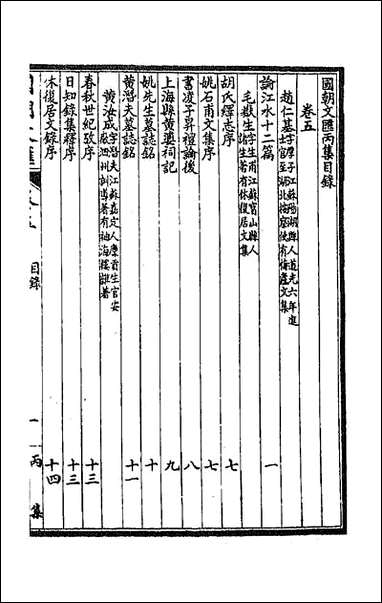 國朝文匯丙集目錄
卷五
趙仁基字厚子江蘇陽湖人道光六年進士官至湖北按察使有
論江水十二篇 一
毛嶽生字生甫江蘇寶山縣人諸生著有休復居文集
胡氏繹志序 七
姚石甫文集序 七
書凌子昇禮論後 八
上海縣黃婆祠記 九
姚先生墓誌銘 十
黃潛夫墓誌銘 十一
黃汝成字潛夫江蘇嘉定人廩貢生官安徽泗州訓導著有袖海樓雜著
春秋世紀攷序 十三
日知錄集釋序 十三
休復居文錄序 十四
國朝文匯 卷五 目錄 一 丙集